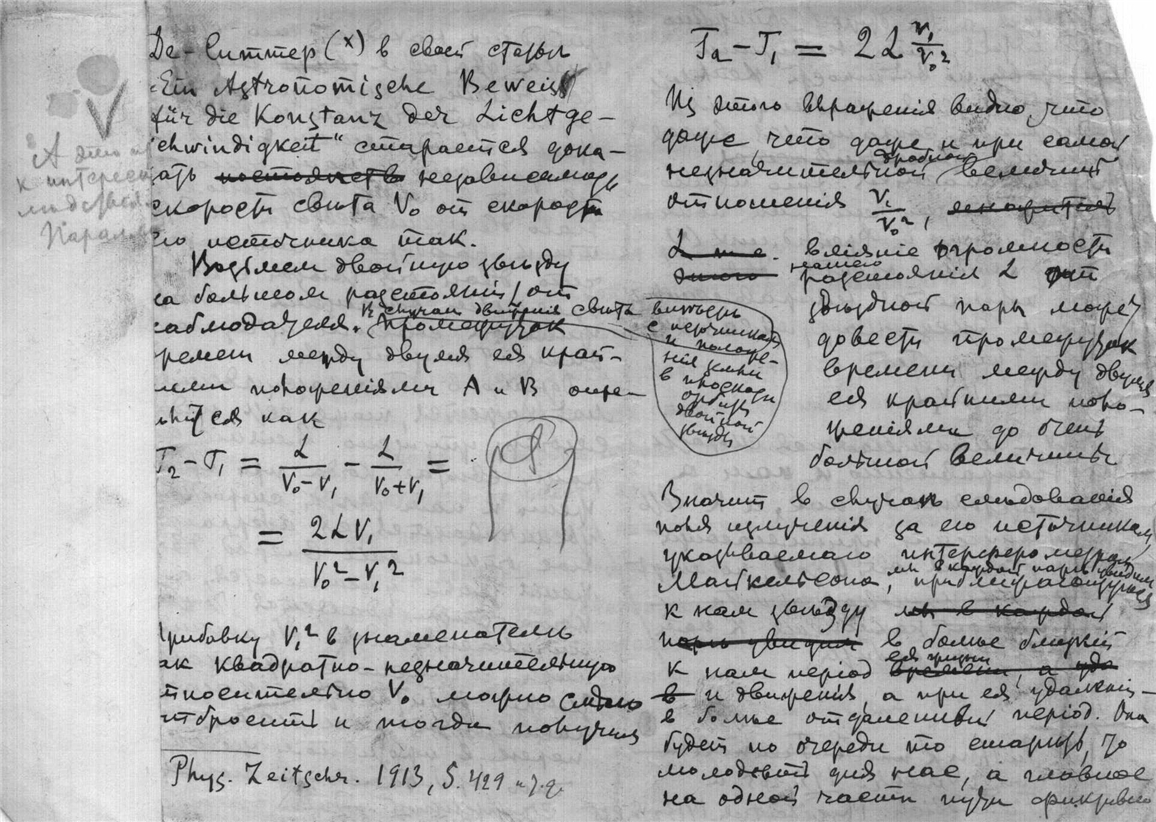 Де-Ситтер (х) в своей статьи
"Ein Astronomische Beweis
für die Konstanz der Lichtge-
schwindigkeit" старается дока-
зать постоянство независимость
скорости свѣта V₀ от скорости
его источника так.
Возьмем двойную звѣзду
на большом разстоянiи L от
наблюдателя. В случаѣ движенiя свѣта вмѣстѣ
с источником
и положе-
нiя земли
в плоскости
орбиты
двойной
звѣзды
промежуток
времени между двумя ея край-
ними положенiями А и В опре-
дѣлится как
T₂ - T₁ = L/(V₀ - V₁) - L/(V₀ + V₁) =
= 2LV₁/(V₀² - V₁²)
Прибавку V₁² в знаменатель
как квадратно-незначительную
относительно V₀ можно смѣло
отбросить и тогда получим
Phys. Zeitschr. 1913, S. 429
"А это
T₂ - T₁ = 2L V₁/V₀²
Из этого выраженiя видно, что
даже, что даже и при самой
незначительной дробной величинѣ
отношенiя V₁/V₀²,
L
этого влiянiе огромности
нашего разстоянiя L от
звѣздной пары может
довести промежуток
времени между двумя
ея крайними поло-
женiями до очень
большой величины
Значит в случаѣ слѣдованiя
поля излученiя за его источником,
указываемаго интерферометром
Майкельсона, мы в каждой парѣ увидим приближающуюся
к нам звѣзду мы в каждой
парѣ увидим в болѣе близкiй
к нам перiод ея жизни времени, а уда
в и движенiя, а при ея удаленiи -
в болѣе отдаленный перiод. Она
будет по очереди то старѣть, то
молодѣть для нас, а главное
на одной части пути фиктивно